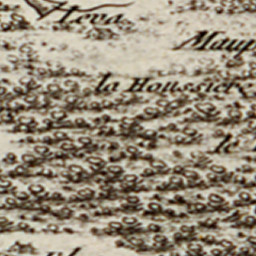 Leva
Maup
la Houssiere
le